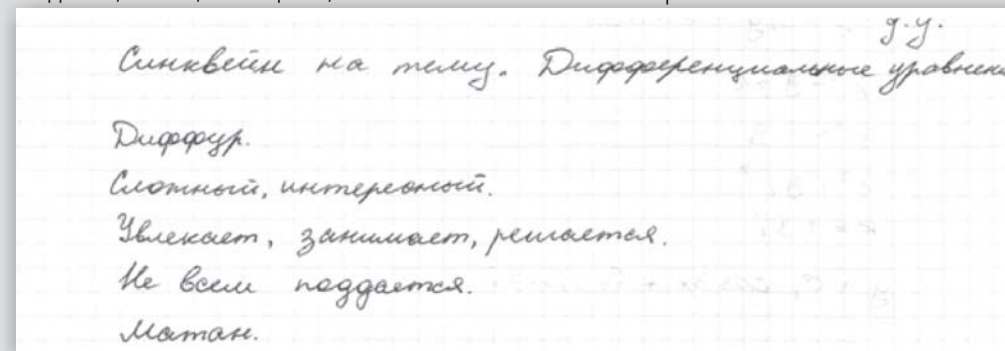 д.у.
Синквейн на тему. Дифференциальные уравнен
Диффур.
Сложный, интересный.
Увлекает, занимает, решается.
Не всем поддается.
Матан.